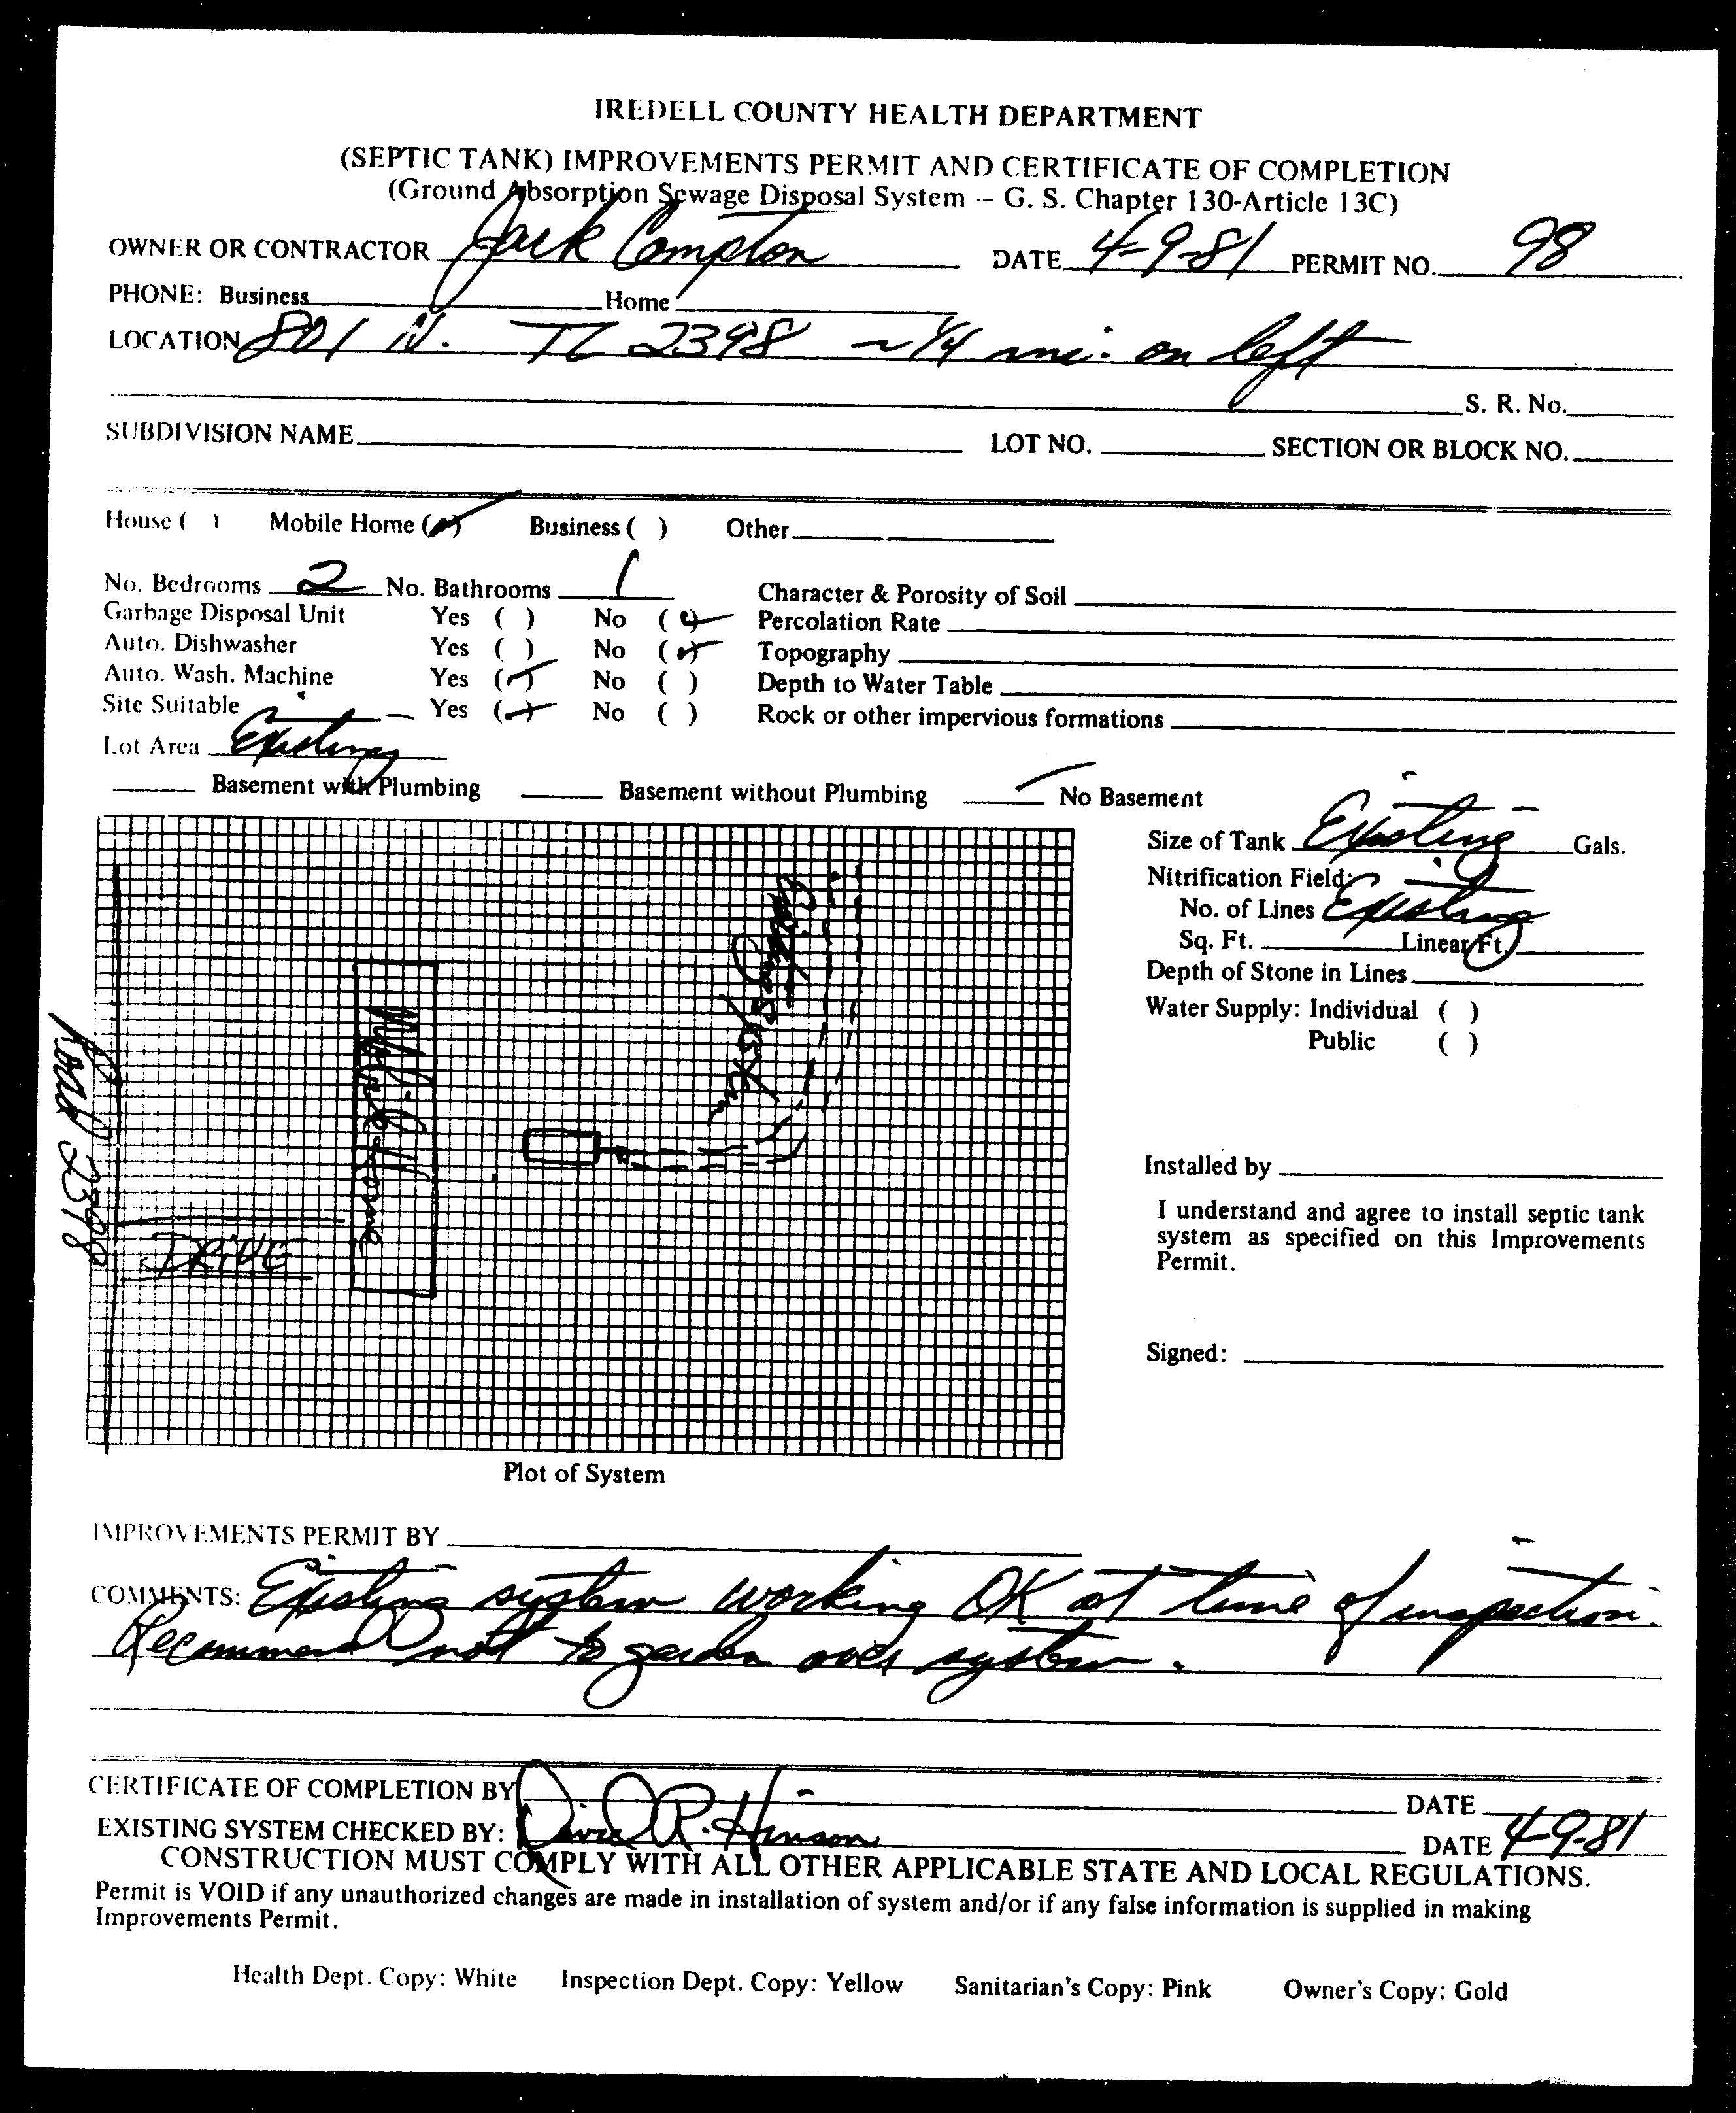 IREDELL COUNTY HEALTH DEPARTMENT
(SEPTIC TANK) IMPROVEMENTS PERMIT AND CERTIFICATE OF COMPLETION
(Ground Absorption Sewage Disposal System -- G. S. Chapter 130-Article 13C)
OWNER OR CONTRACTOR Jack Compton DATE 4-9-81 PERMIT NO. 98
PHONE: Business Home
LOCATION 801 N. TL 2398 ~ 1/4 mi. on left
S. R. No.
SUBDIVISION NAME LOT NO. SECTION OR BLOCK NO.
House ( ) Mobile Home (✓) Business ( ) Other
No. Bedrooms 2 No. Bathrooms 1 Character & Porosity of Soil
Garbage Disposal Unit Yes ( ) No (✓) Percolation Rate
Auto. Dishwasher Yes ( ) No (✓) Topography
Auto. Wash. Machine Yes (✓) No ( ) Depth to Water Table
Site Suitable Yes (✓) No ( ) Rock or other impervious formations
Lot Area Existing
Basement with Plumbing Basement without Plumbing ✓ No Basement
Size of Tank Existing Gals.
Nitrification Field:
No. of Lines Existing
Sq. Ft. Linear Ft.
Depth of Stone in Lines
Water Supply: Individual ( )
Public ( )
Road 2398
DRIVE
Mobile Home
Existing
System
Installed by
I understand and agree to install septic tank
system as specified on this Improvements
Permit.
Signed:
Plot of System
IMPROVEMENTS PERMIT BY
COMMENTS: Existing system working OK at time of inspection.
Recommend not to garden over system.
CERTIFICATE OF COMPLETION BY DATE
EXISTING SYSTEM CHECKED BY: David R. Hinson DATE 4-9-81
CONSTRUCTION MUST COMPLY WITH ALL OTHER APPLICABLE STATE AND LOCAL REGULATIONS.
Permit is VOID if any unauthorized changes are made in installation of system and/or if any false information is supplied in making
Improvements Permit.
Health Dept. Copy: White Inspection Dept. Copy: Yellow Sanitarian's Copy: Pink Owner's Copy: Gold